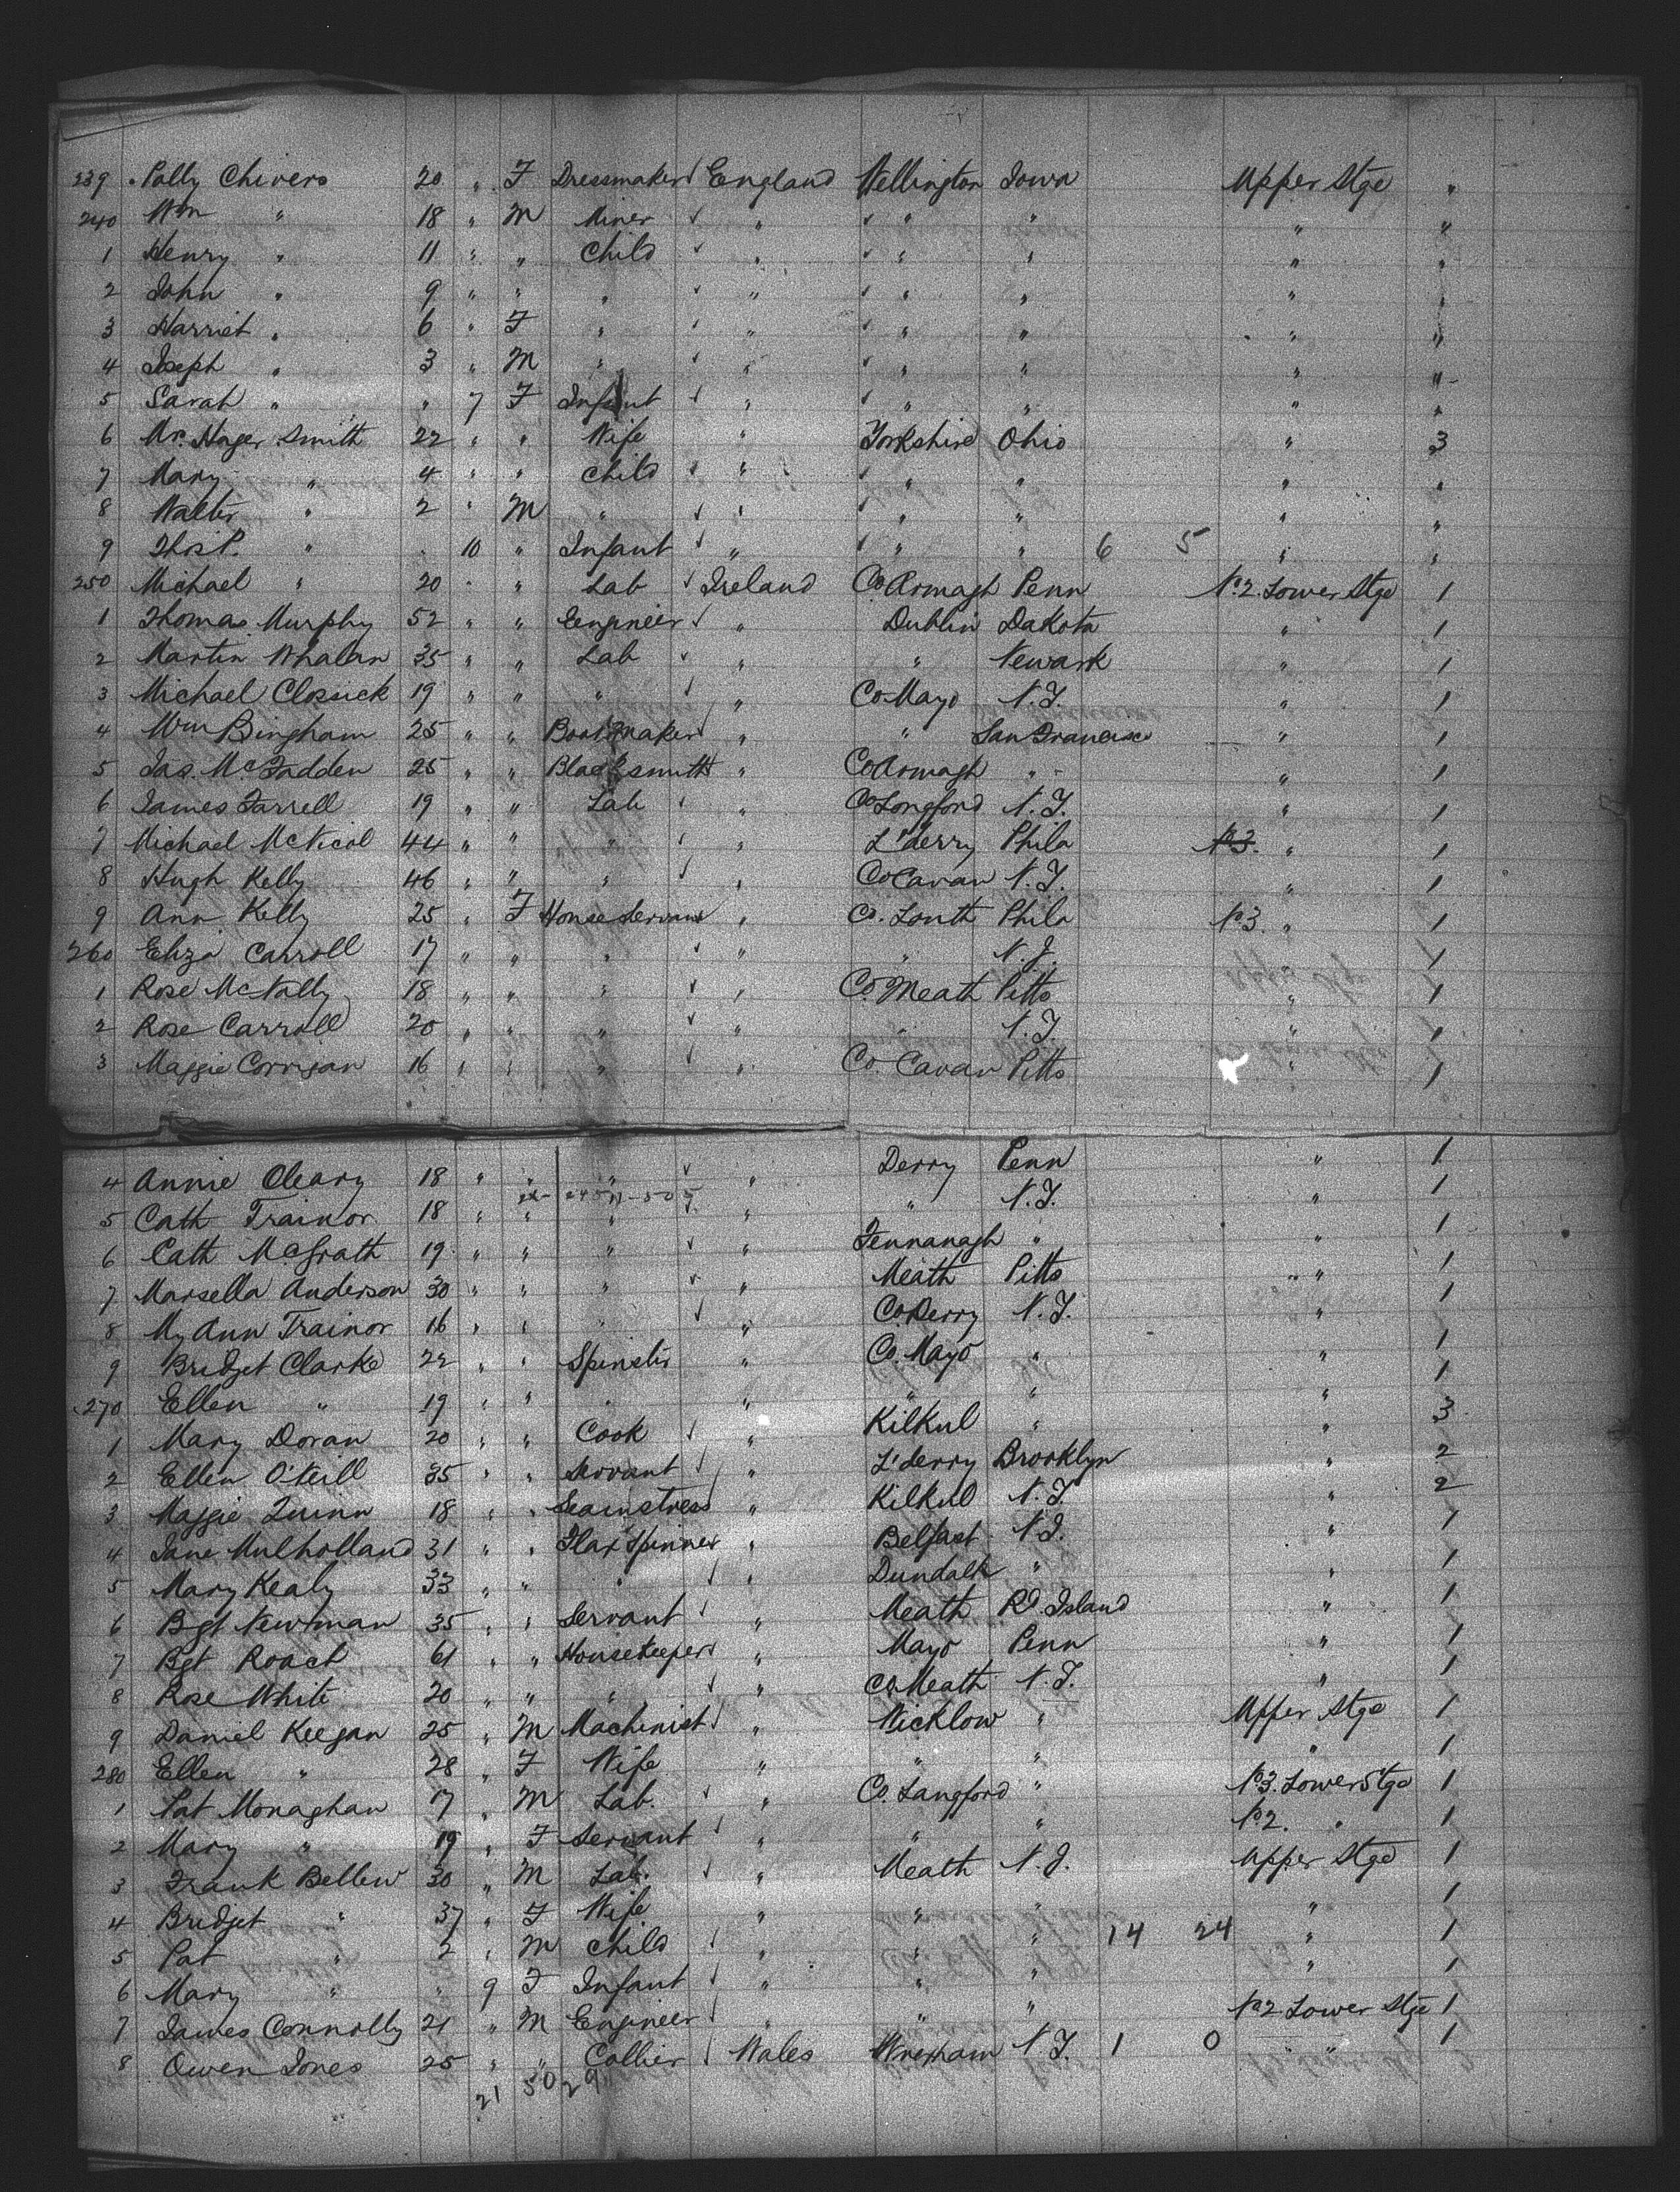 239 Polly Chivers 20 " F Dressmaker √ England Wellington Iowa Upper Stge "
240 Wm " 18 " M Miner √ " √ " " " "
1 Henry " 11 " " Child √ " √ " " " "
2 John " 9 " " " √ " √ " " " "
3 Harriet " 6 " F " √ " √ " " " "
4 Joseph " 3 " M " √ " √ " " " "
5 Sarah " " 7 F Infant √ " √ " " " "
6 Mrs. Hager Smith 22 " " Wife " Yorkshire Ohio " 3
7 Mary " 4 " " Child √ " √ " " " "
8 Walter " 2 " M " √ " √ " " " "
9 Thos P. " " 10 " Infant √ " √ " " 6 5 " "
250 Michael " 20 " " Lab √ Ireland Co Armagh Penn No 2. Lower Stge 1
1 Thomas Murphy 52 " " Eengineer √ " Dublin Dakota " 1
2 Martin Whalan 35 " " Lab √ " " Newark " 1
3 Michael Clossick 19 " " " √ " Co Mayo N.Y. " 1
4 Wm Bingham 25 " " Bootmaker √ " " San Francisco " 1
5 Jas. McFadden 25 " " Blacksmith " Co Armagh " " 1
6 James Farrell 19 " " Lab √ " Co Longford N.Y. " 1
7 Michael McNicol 44 " " " √ " L'derry Phila No 3. " 1
8 Hugh Kelly 46 " " " √ " Co Cavan N.Y. " 1
9 Ann Kelly 25 " F House Servant " Co. Louth Phila No 3. " 1
260 Eliza Carroll 17 " " " √ " " N.J. 1
1 Rose McNally 18 " " " √ " Co. Meath Pitts " 1
2 Rose Carroll 20 " " " √ " " N.Y. " 1
3 Maggie Corrigan 16 " " " √ " Co. Cavan Pitts " 1
4 Annie Cleary 18 " " " √ " Derry Penn " 1
5 Cath Trainor 18 " " " √ " " N.Y. " 1
6 Cath McGrath 19 " " " √ " Fennanagh " " 1
7 Marsella Anderson 30 " " " √ " Meath Pitts " 1
8 My Ann Trainor 16 " " " √ " Co. Derry N.Y. " 1
9 Bridget Clarke 22 " " Spinster " Co. Mayo " " 1
270 Ellen " 19 " " " " " " " 1
1 Mary Doran 20 " " Cook √ " Kilkul " " 3
2 Ellen O'Neill 35 " " Servant √ " L'derry Brooklyn " 2
3 Maggie Quinn 18 " " Seamstress " Kilkul N.Y. " 2
4 Jane Mulholland 31 " " Flax Spinner " Belfast N.J. " 1
5 Mary Kealy 33 " " " √ " Dundalk " " 1
6 Bgt Newman 35 " " Servant √ " Meath Rd. Island " 1
7 Bgt Roach 61 " " Housekeeper √ " Mayo Penn " 1
8 Rose White 20 " " " √ " Co. Meath N.Y. " 1
9 Daniel Keegan 25 " M Machinist √ " Wicklow " Upper Stge 1
280 Ellen " 28 " F Wife " " " " 1
1 Pat Monaghan 17 " M Lab. √ " Co. Langford " No 3. Lower Stge 1
2 Mary " 19 " F Servant √ " " " No 2. " 1
3 Frank Bellew 30 " M Lab. √ " Meath N.J. Upper Stge 1
4 Bridget " 37 " F Wife " " " " 1
5 Pat " 2 " M Child √ " " " 14 24 " 1
6 Mary " " 9 F Infant √ " " " " 1
7 James Connolly 21 " M Engineer √ " " " No 2 Lower Stge 1
8 Owen Jones 25 " " Collier √ Wales Wrexham N.Y. 1 0 " " 1
21 50 29